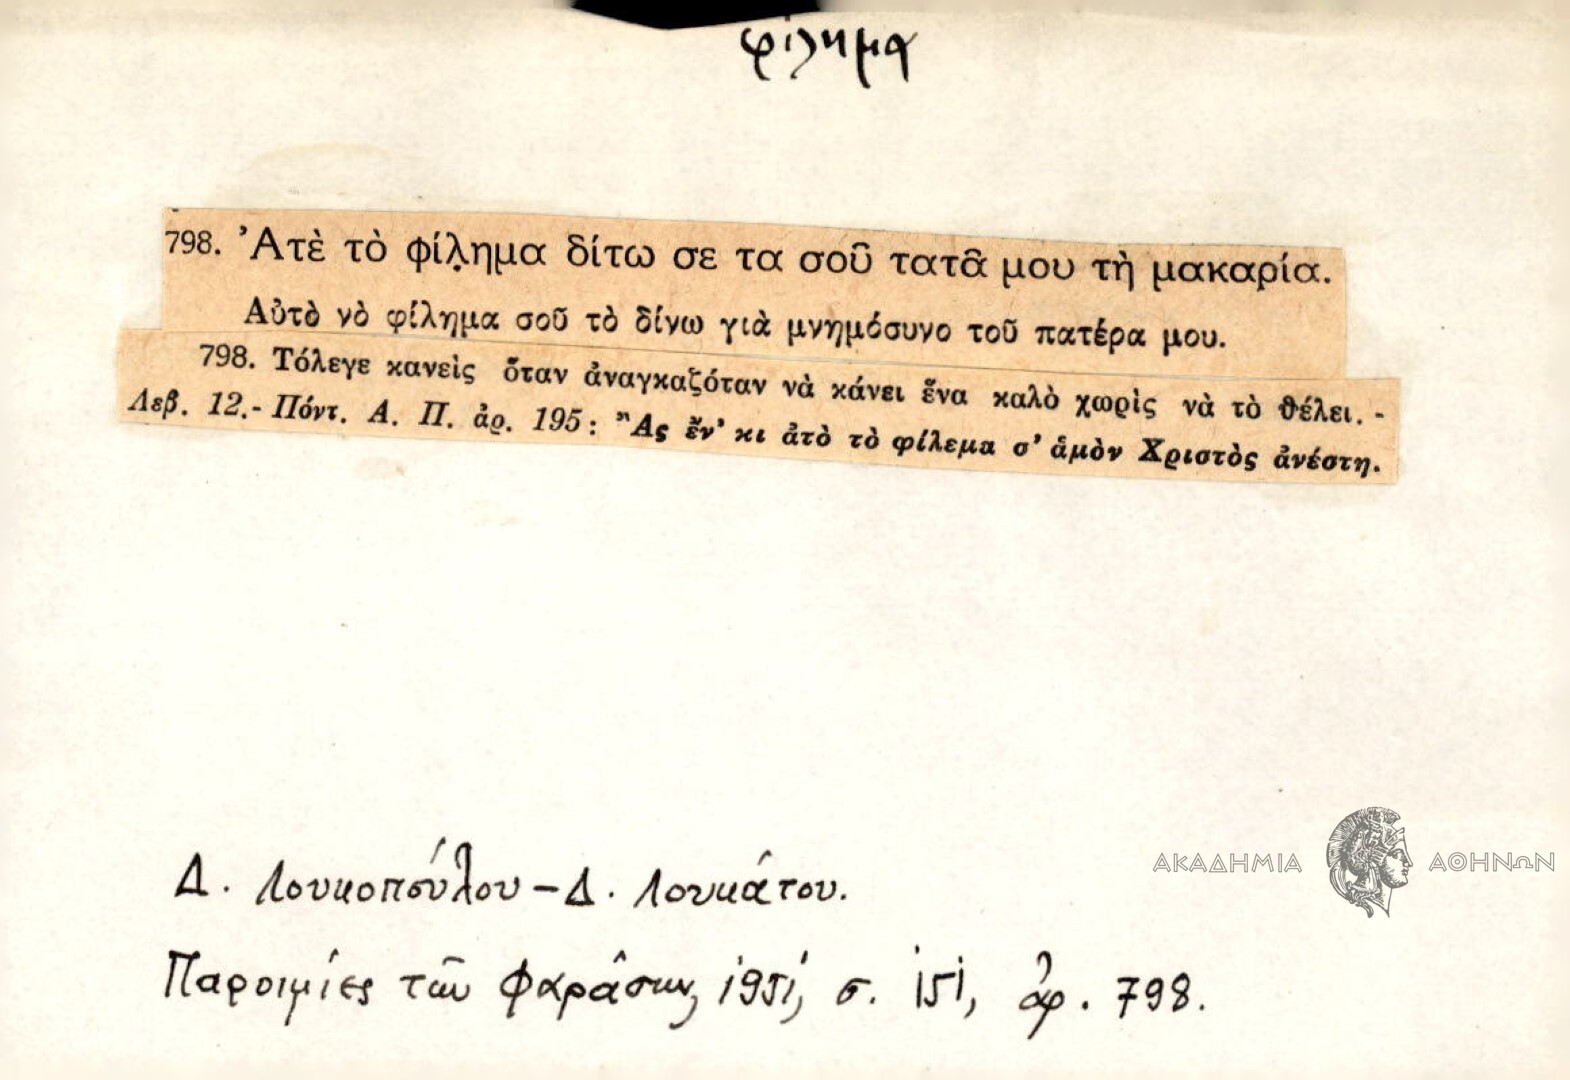 φίλημα
798. Ἀτὲ τὸ φίλ̣ημα δίτω σε τα σοῦ τατᾶ μου τὴ μακαρία.
Αὐτὸ νὸ φίλημα σοῦ τὸ δίνω γιὰ μνημόσυνο τοῦ πατέρα μου.
798. Τόλεγε κανεὶς ὅταν ἀναγκαζόταν νὰ κάνει ἕνα καλὸ χωρὶς νὰ τὸ θέλει. -
Λεβ. 12.- Πόντ. Α. Π. ἀρ. 195: "Ἂς ἔν' κι ἀτὸ τὸ φίλεμα σ' ἁμὸν Χριστὸς ἀνέστη.
Δ. Λουκοπούλου – Δ. Λουκάτου.
ΑΚΑΔΗΜΙΑ ΑΘΗΝΩΝ
Παροιμίες τῶν Φαράσων, 1951, σ. 151, ἀρ. 798.